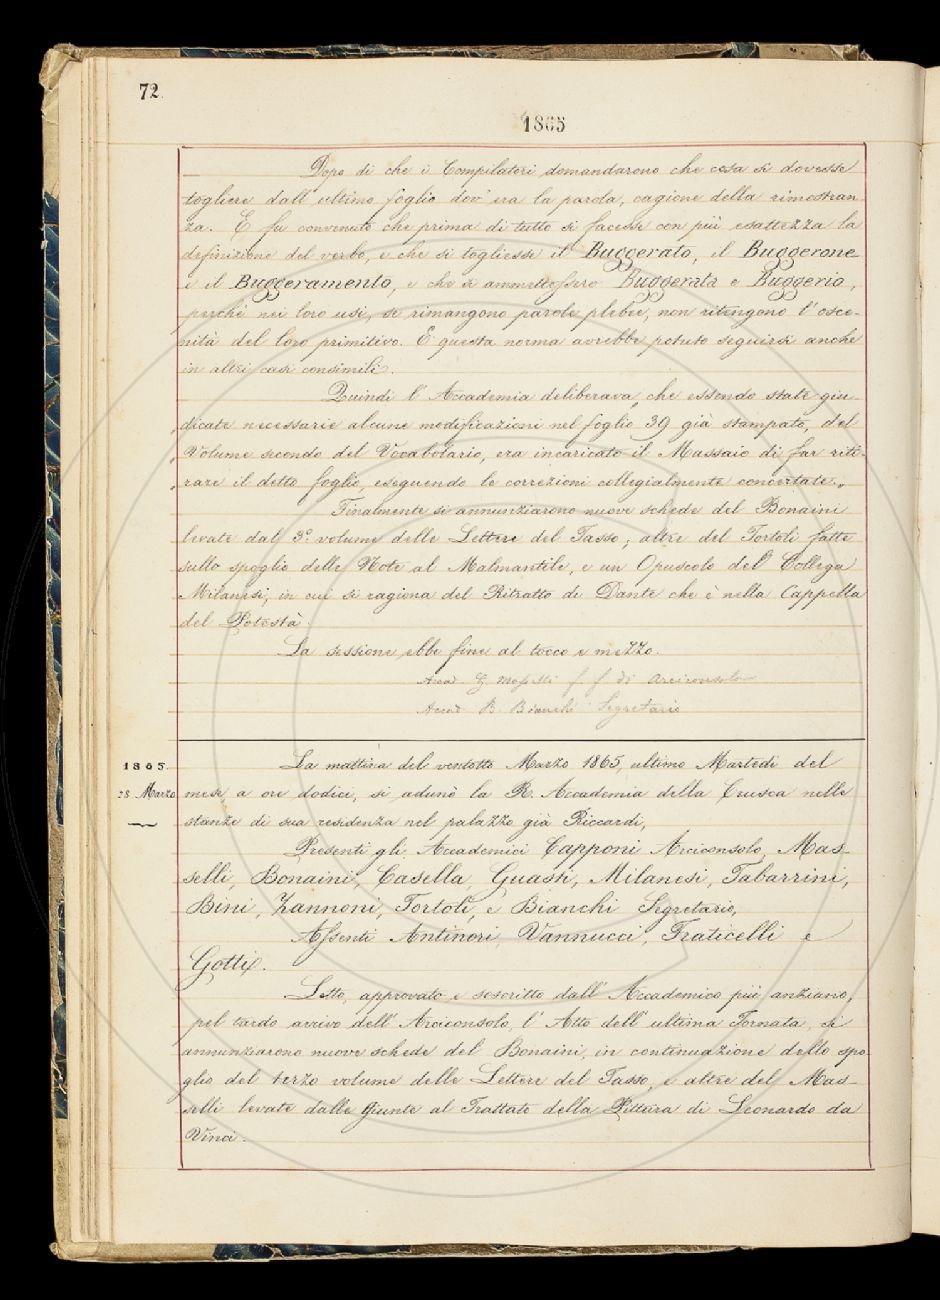 72.
1865
Dopo di che i Compilatori domandarono che cosa si dovesse
togliere dall'ultimo foglio dov'era la parola, cagione della rimostran-
za. E fu convenuto che prima di tutto si facesse con più esattezza la
definizione del verbo, e che si togliesse il Buggerato, il Buggerone
e il Buggeramento, e che si ammettessero Buggerata e Buggerio,
perchè nei loro usi, se rimangono parole plebee, non ritengono l'osce-
nità del loro primitivo. E questa norma avrebbe potuto seguirsi anche
in altri casi consimili.
Quindi l'Accademia deliberava „che essendo state giu-
„dicate necessarie alcune modificazioni nel foglio 39 già stampato, del
„Volume secondo del Vocabolario, era incaricato il Massaio di far riti-
„rare il detto foglio, eseguendo le correzioni collegialmente concertate.„
Finalmente si annunziarono nuove schede del Bonaini
levate dal 3.° volume delle Lettere del Tasso; altre del Tortoli fatte
sullo spoglio delle Note al Malmantile, e un Opuscolo del Collega
Milanesi, in cui si ragiona del Ritratto di Dante che è nella Cappella
del Potestà.
La sessione ebbe fine al tocco e mezzo.
Accad. G. Masselli f. f. di Arciconsolo
Accad. B. Bianchi Segretario
1865.
28 Marzo
La mattina del ventotto Marzo 1865, ultimo Martedì del
mese a ore dodici, si adunò la R. Accademia della Crusca nelle
stanze di sua residenza nel palazzo già Riccardi,
Presenti gli Accademici Capponi Arciconsolo, Mas-
selli, Bonaini, Casella, Guasti, Milanesi, Tabarrini,
Bini, Zannoni, Tortoli, e Bianchi Segretario,
Assenti Antinori, Vannucci, Fraticelli e
Gotti.
Letto, approvato e soscritto dall'Accademico più anziano,
pel tardo arrivo dell'Arciconsolo, l'Atto dell'ultima Tornata, si
annunziarono nuove schede del Bonaini, in continuazione dello spo-
glio del terzo volume delle Lettere del Tasso, e altre del Mas-
selli levate dalle Giunte al Trattato della Pittura di Leonardo da
Vinci.